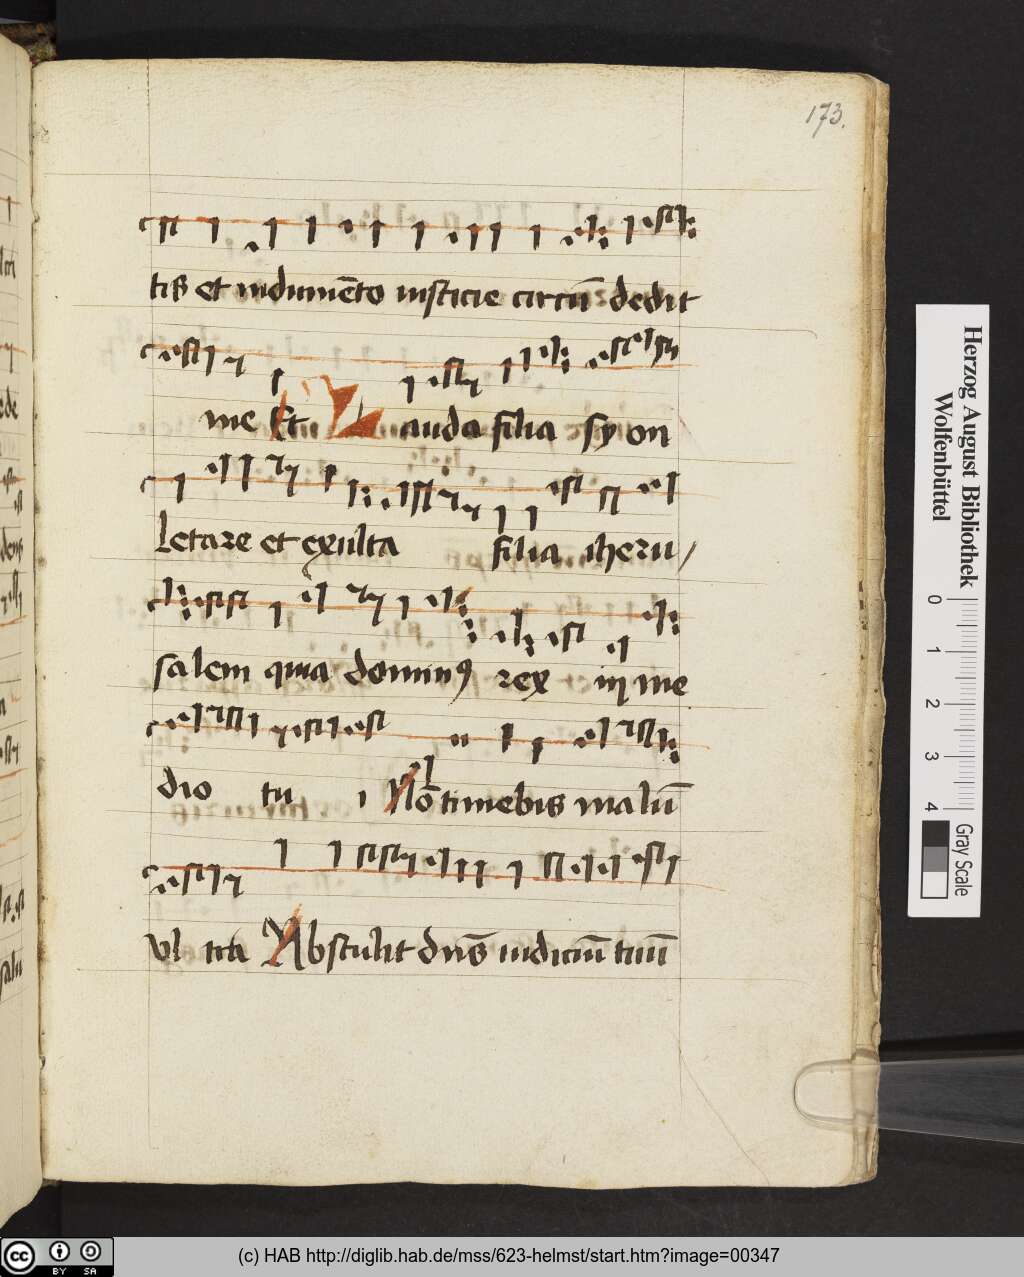 173.
tis et indumēto iusticie circū dedit
me Et Lauda filia syon
Letare et exulta filia iheru/
salem quia dominꝰ rex in me
dio tui Nō timebis malū
vl tra Abstulit dn̄s iudiciū tuū
Herzog August Bibliothek
Wolfenbüttel
0 1 2 3 4
Gray Scale
cc BY SA
(c) HAB http://diglib.hab.de/mss/623-helmst/start.htm?image=00347